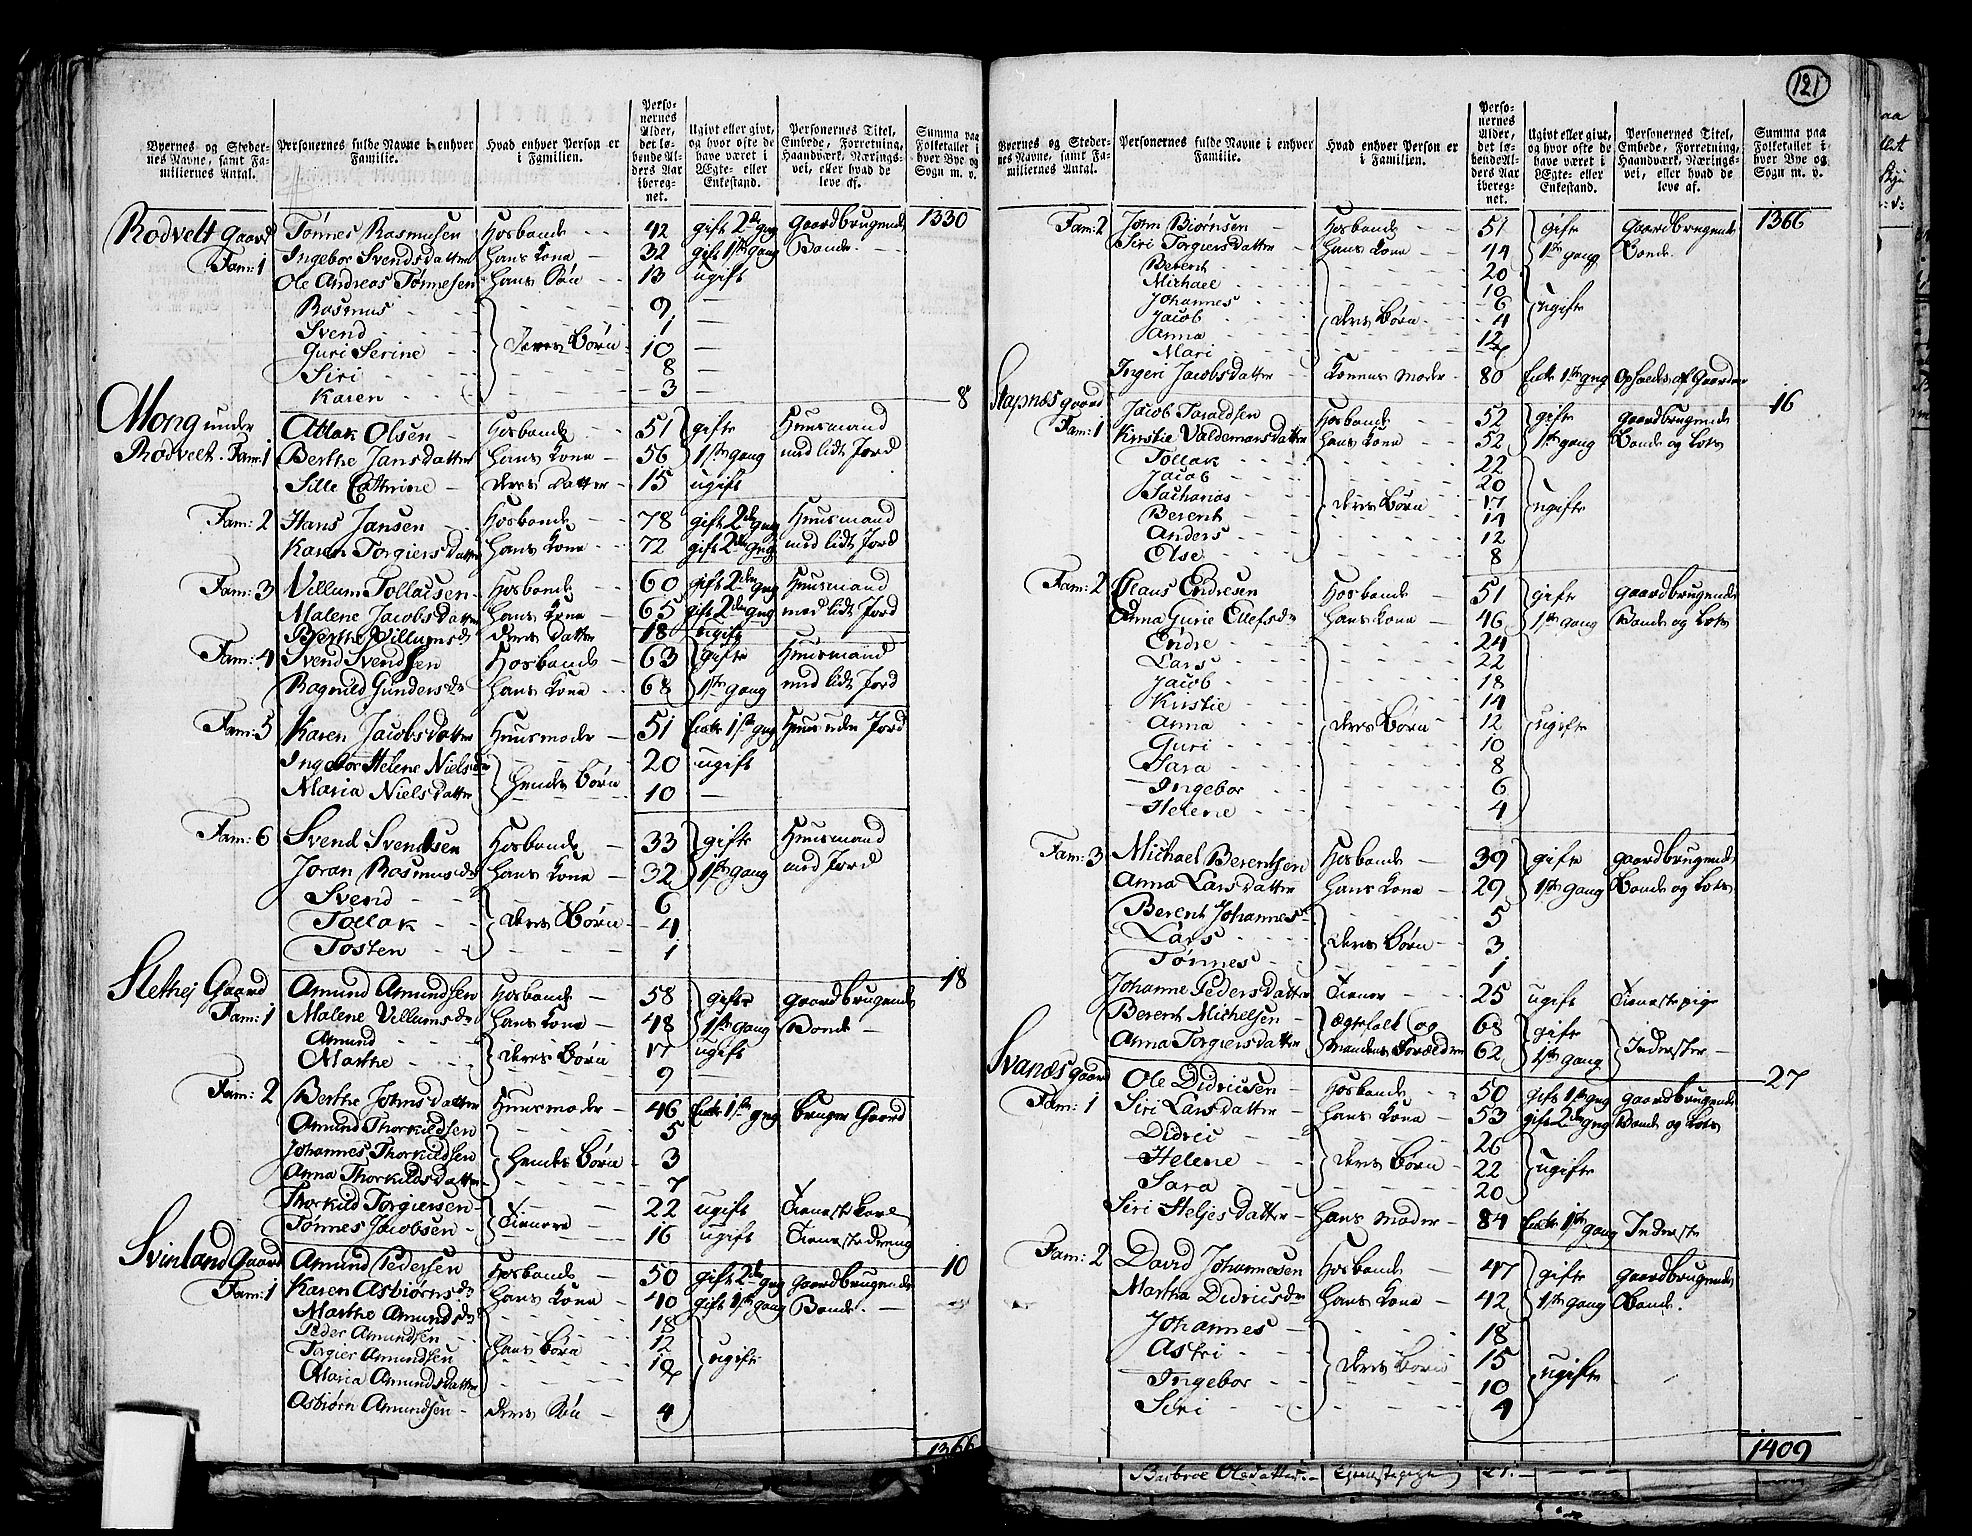 121
Byernes og Stedernes Navne, samt Familiernes Antal.
Personernes fulde Navne i enhver Familie.
Hvad enhver Person er i Familien.
Personernes Alder, det løbende Alders Aar iberegnet.
Ugivt eller givt, og hvor ofte de have været i Ægte- eller Enkestand.
Personernes Titel, Embede, Forretning, Haandværk, Næringsvei, eller hvad de leve af.
Summa paa Folketallet i hver Bye og Sogn m. v.
Rodvelt Gaard Tønnes Rasmusen Hosbonde 42 gift 2de gng Gaardbrugende 1330
Fam: 1 Ingebor Svendsdatter Hans Kone 32 gift 1ste gang Bonde
Ole Andreas Tønnesen Hans Søn 13 ugift
Rasmus 9
Svend 1
Guri Serine Deres Børn 10
Siri 8
Karen 3
8
Mong under Ablak Olsen Hosbonde 51 gifte Huusmand
Rodvelt. Fam: 1 Berthe Jansdatter Hans Kone 56 1ste gang med lidt Jord
Sille Cathrine Deres Datter 15 ugift
Fam: 2 Hans Jansen Hosbonde 78 gift 2de gng Huusmand
Karen Torgiersdatter Hans Kone 72 gift 2de gng med lidt Jord
Fam: 3 Villum Tollacsen Hosbonde 60 gift 2den gng Huusmand
Malene Jacobsdatter Hans Kone 65 gift 2den gng med lidt Jord
Berthe Villumsdr Deres Datter 18 ugift
Fam: 4 Svend Svendsen Hosbonde 63 gifte Huusmand
Ragnild Gundersdr Hans Kone 68 1ste gang med lidt Jord
Fam: 5 Karen Jacobsdatter Huusmoder 51 Enke 1ste gng Huus uden Jord
Ingebor Helene Nielsdr 20 ugift
Maria Nielsdatter Hendes Børn 10
Fam: 6 Svend Svendsen Hosbonde 33 gifte Huusmand
Joran Rasmusdr Hans Kone 32 1ste gang med Jord
Svend 6
Tollak Deres Børn 4
Tosten 1
18
Slethej Gaard Amund Amundsen Hosbonde 58 gifte Gaardbrugende
Fam: 1 Malene Villumsdr Hans Kone 48 1ste gang Bonde
Amund 17 ugift
Marthe Deres Børn 9
Fam: 2 Berthe Johnsdatter Huusmoder 46 Enke 1ste gng bruger Gaard
Amund Thorkildsen 5
Johannes Thorkildsen Hendes Børn 3
Anna Thorkildsdatter 7
Thorkild Torgiersen 22 ugift Tieneste Karl
Tønnes Jacobsen Tienere 16 ugift Tienestedreng
Svinland Gaard Amund Pedersen Hosbonde 50 gift 2de gng Gaardbrugende 10
Fam: 1 Karen Asbiørnsdr Hans Kone 40 gift 1ste gang Bonde
Marthe Amundsdr 18
Peder Amundsen 12
Torgier Amundsen Hans Børn ugifte
Maria Amundsdatter
Asbiørn Amundsen Deres Søn 4
1366
Fam: 2 John Biørnsen Hosbonde 51 gifte Gaardbrugende 1366
Siri Torgiersdatter Hans Kone 44 1ste gang Bonde
Berent 20
Michael 10
Johannes 6 ugifte
Jacob Deres Børn 4
Anna 12
Mari
Ingeri Jacobsdatter Konens Moder 80 Enke 1ste gng Opholdes af Gaarden
16
Stapnes Gaard Jacob Taraldsen Hosbonde 52 gifte Gaardbrugende
Fam: 1 Kirstie Valdemarsdatter Hans Kone 52 1ste gang Bonde og Lods
Tollak 22
Jacob 20
Sacharias Deres Børn 17 ugifte
Berent 14
Anders 12
Else 8
Fam: 2 Claus Endresen Hosbonde 51 gifte Gaardbrugende
Anna Gurie Ellefsdr Hans Kone 46 1ste gang Bonde og Lods
Endre 24
Lars 22
Jacob 18
Kirstie 14
Anna Deres Børn 12 ugifte
Guri 10
Sara 8
Ingebor 6
Helene 4
Fam: 3 Michael Berentsen Hosbonde 39 gifte Gaardbrugende
Anna Larsdatter Hans Kone 29 1ste gang Bonde og Lods
Berent Johannes 5
Lars Deres Børn 3
Tønnes 1
Johanne Pedersdatter Tiener 25 ugift Tienestepige
Berent Michelsen Ægtefolk og 68 gifte
Anna Torgiersdatter Mandens Forældre 62 1ste gang Inderster
27
Svanes Gaard Ole Didricsen Hosbonde 50 gift 1ste gng Gaardbrugende
Fam: 1 Siri Larsdatter Hans Kone 53 gift 2de gng Bonde og Lods
Didric 26
Helene Deres Børn 22 ugifte
Sara 20
Siri Heljesdatter Hans Moder 84 Enke 1ste gang Inderste
Fam: 2 David Johannesen Hosbonde 47 gifte Gaardbrugende
Martha Didricsdr Hans Kone 42 1ste gang Bonde.
Johannes 18
Astri Deres Børn 15
Ingebor 10 ugifte
Siri 4
1409
Barbroe Olsdatter Tjenestepige 21